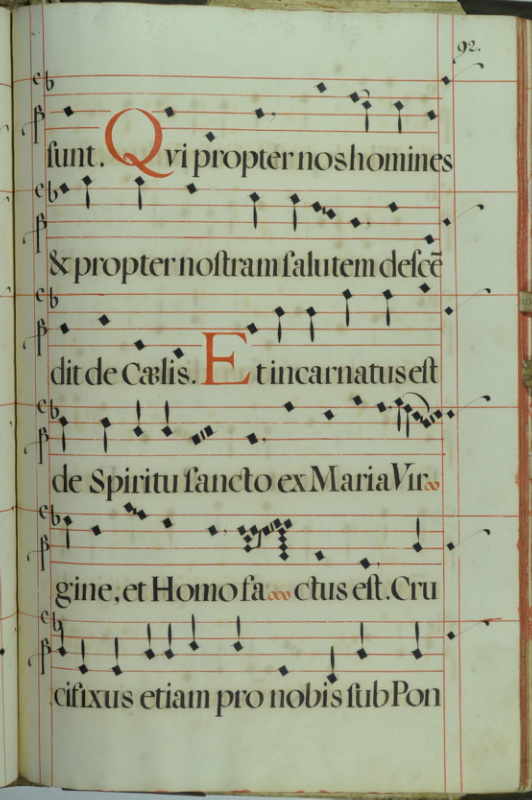 92.
sunt. Qvi propter nos homines
& propter nostram salutem descē
dit de Cælis. Et incarnatus est
de Spiritu sancto ex Maria Vir
gine, et Homo fa ctus est. Cru
cifixus etiam pro nobis sub Pon